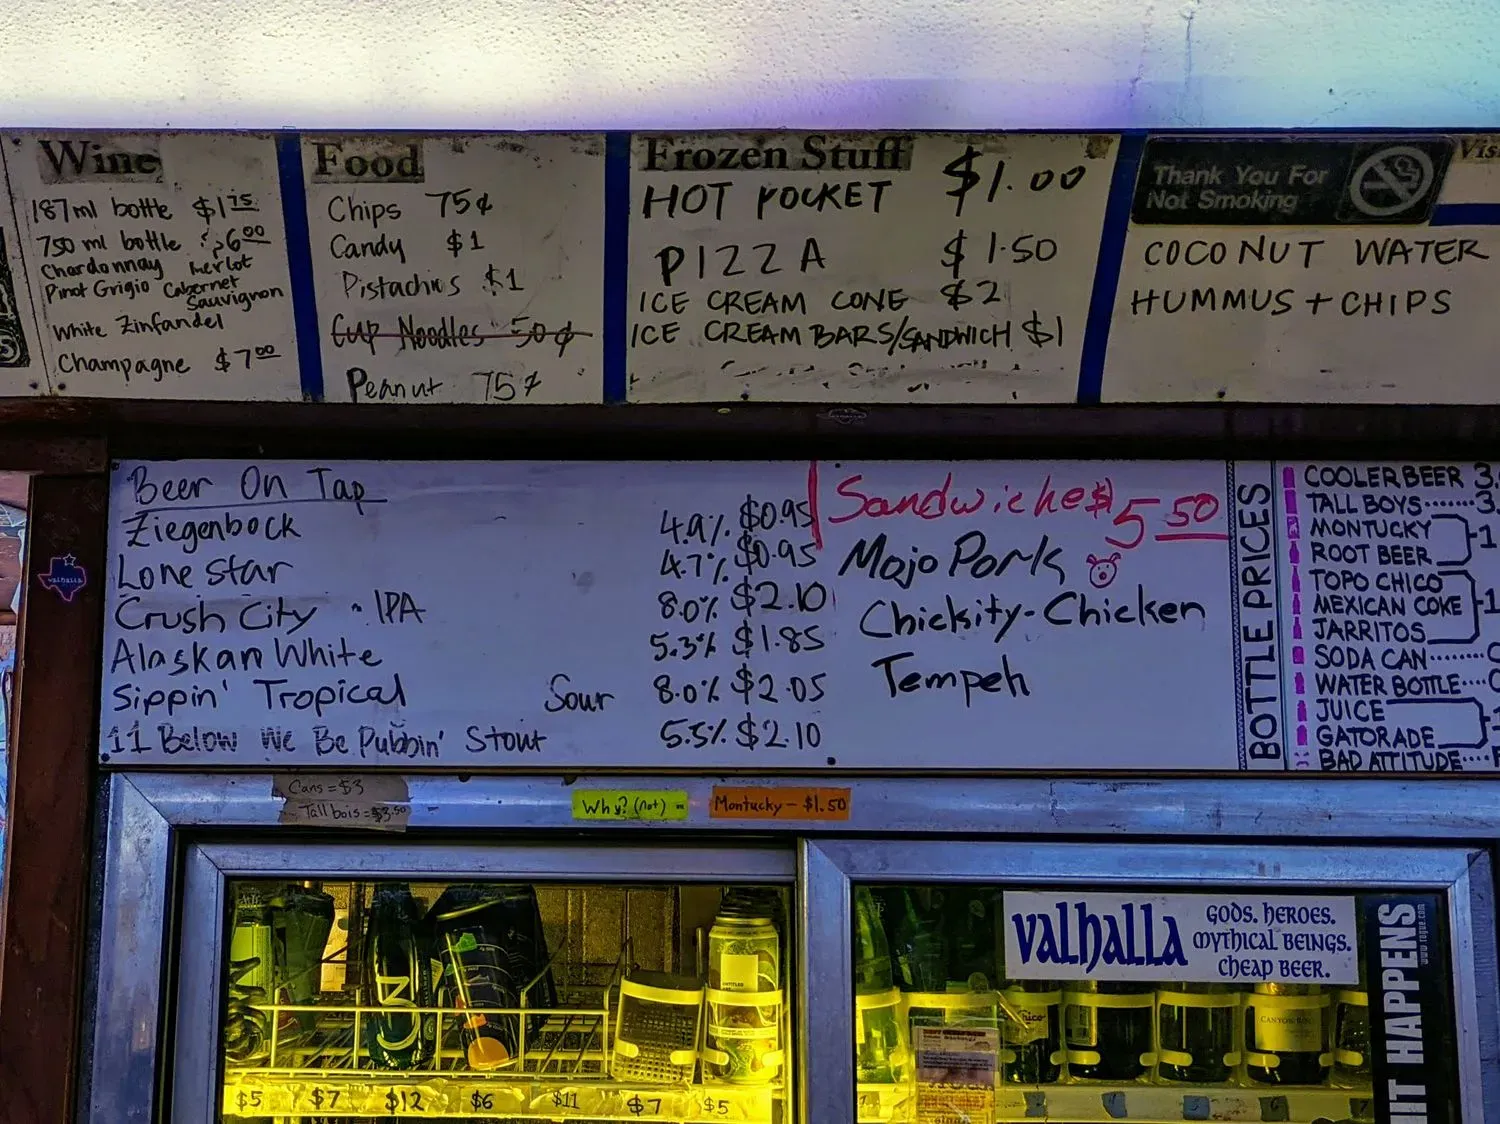 Wine
187ml bottle $1.75
750 ml bottle $6.00
Chardonnay Merlot
Pinot Grigio Cabernet
Sauvignon
White Zinfandel
Champagne $7.00
Food
Chips 75¢
Candy $1
Pistachios $1
Cup Noodles 50¢
Peanut 75¢
Frozen Stuff
HOT POCKET $1.00
PIZZA $1.50
ICE CREAM CONE $2
ICE CREAM BARS/SANDWICH $1
Thank You For
Not Smoking
COCONUT WATER
HUMMUS + CHIPS
Beer On Tap
Ziegenbock 4.9% $0.95
Lone Star 4.7% $0.95
Crush City IPA 8.0% $2.10
Alaskan White 5.3% $1.85
Sippin' Tropical Sour 8.0% $2.05
11 Below We Be Pubbin' Stout 5.5% $2.10
Sandwiches $5.50
Mojo Pork
Chickity-Chicken
Tempeh
BOTTLE PRICES
COOLER BEER 3.
TALL BOYS 3.
MONTUCKY
ROOT BEER
1
TOPO CHICO
MEXICAN COKE
JARRITOS
1
SODA CAN
WATER BOTTLE
JUICE
GATORADE
BAD ATTITUDE
valhalla
Cans = $3
Tall bois = $3.50
Why? (not) =
Montucky - $1.50
valhalla
GODS. HEROES.
MYTHICAL BEINGS.
CHEAP BEER.
HAPPENS
$5 $7 $12 $6 $11 $7 $5